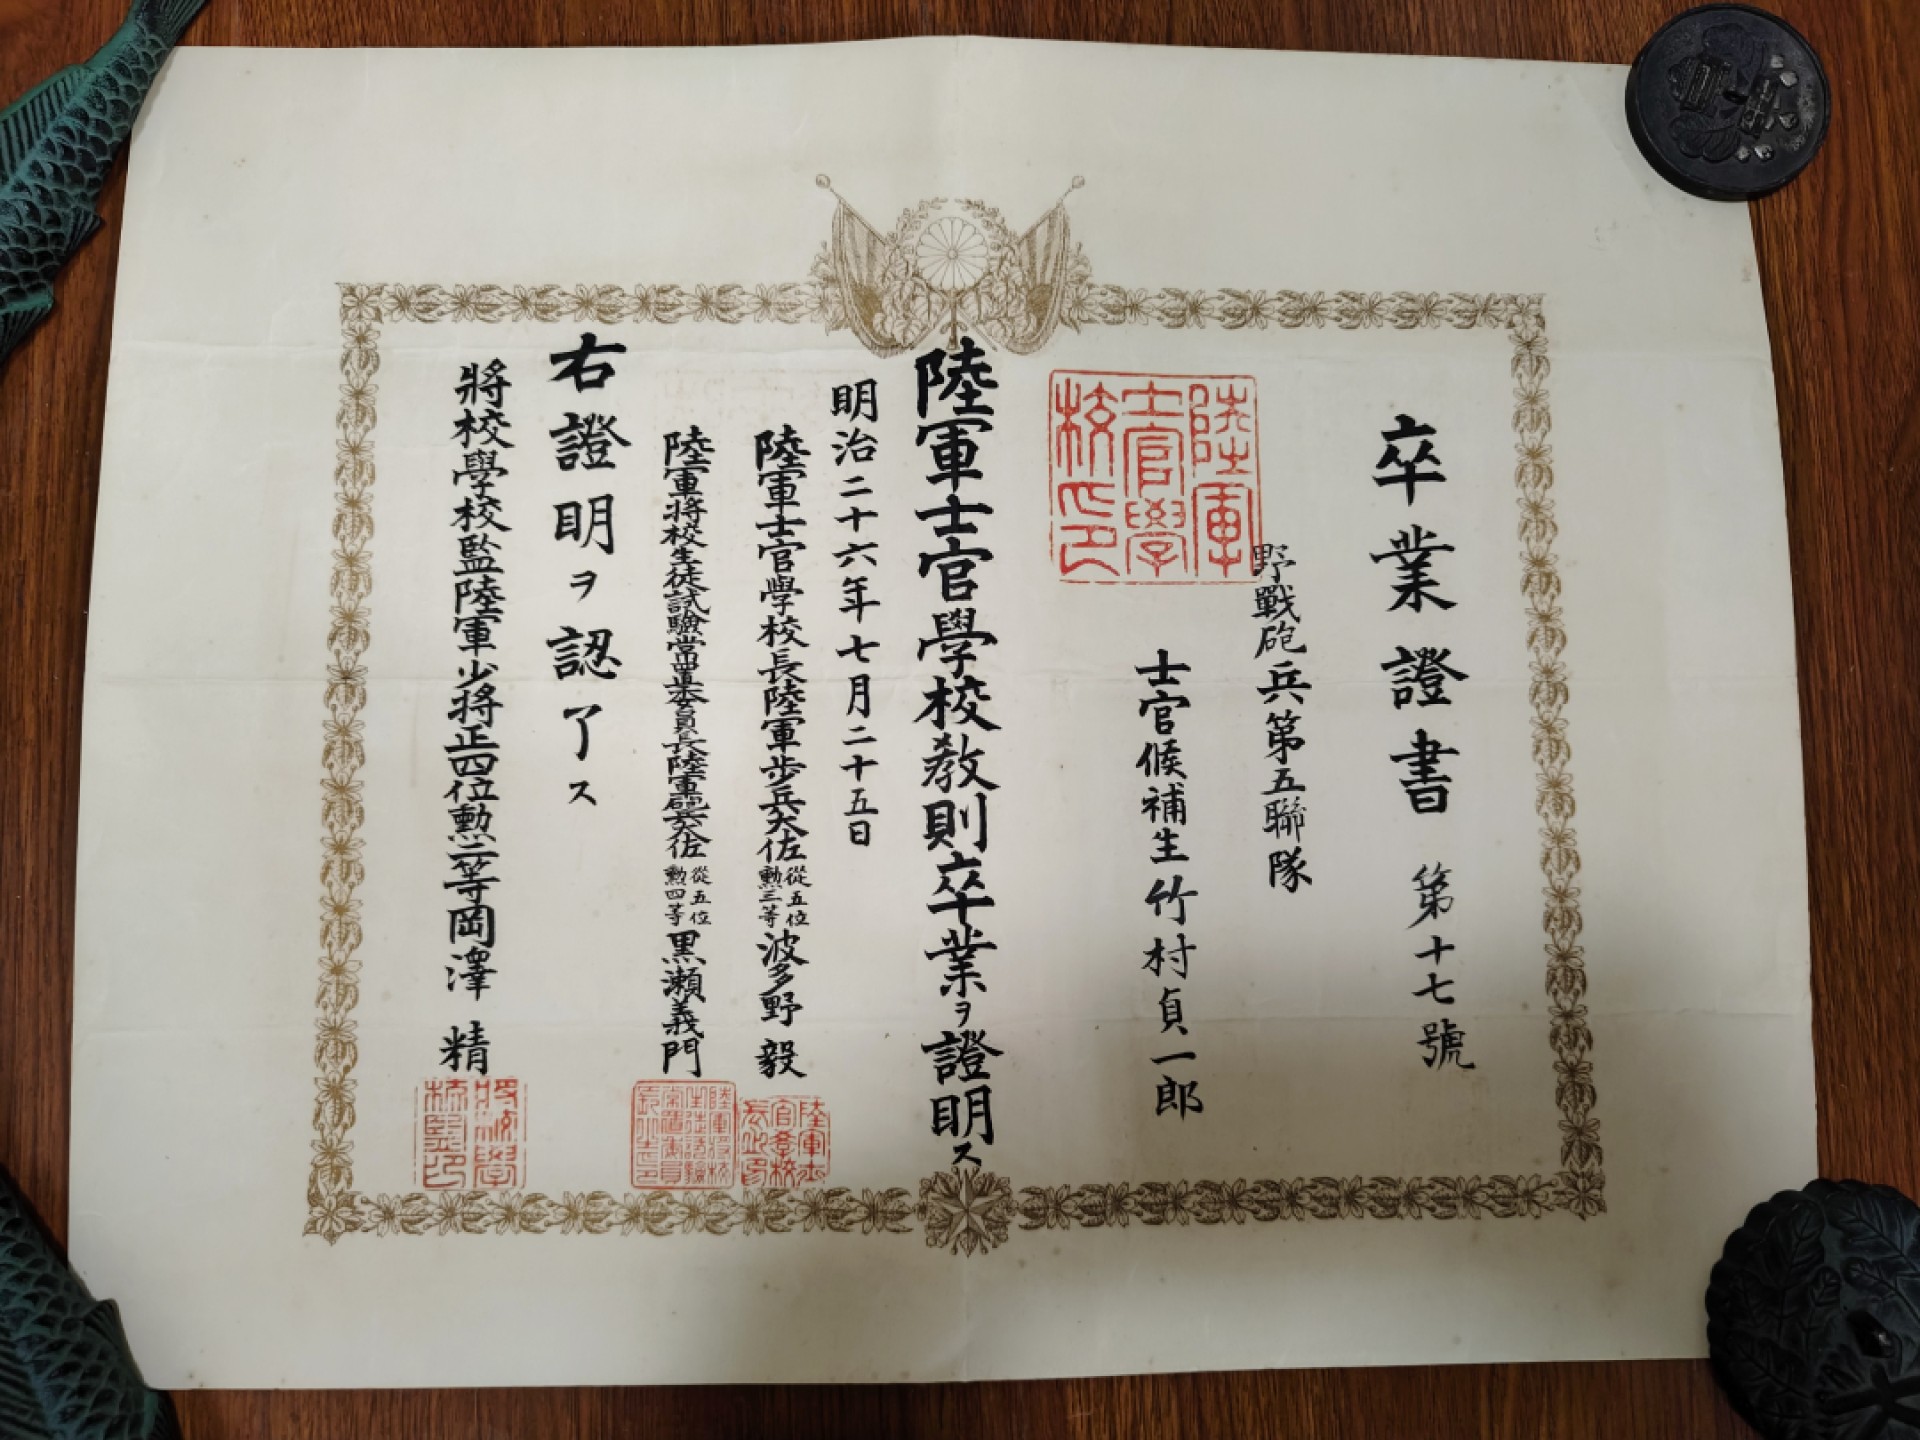 卒業證書 第十七號
野戰砲兵第五聯隊
士官候補生竹村貞一郎
陸軍士官學校印
陸軍士官學校教則卒業ヲ證明ス
明治二十六年七月二十五日
陸軍士官學校長陸軍歩兵大佐從五位勲三等波多野毅
陸軍將校生徒試驗常置委員長陸軍砲兵大佐從五位勲四等黒瀬義門
右證明ヲ認了ス
將校學校監陸軍少將正四位勲二等岡澤精
將校學校監印